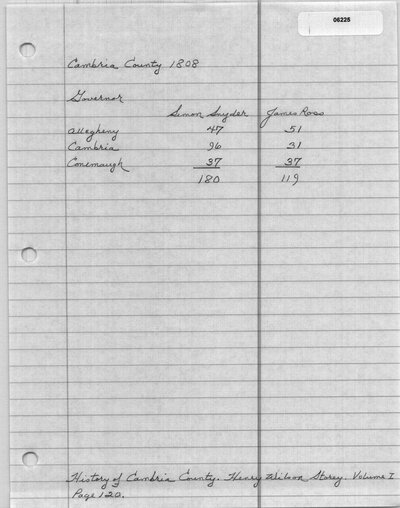 06225
Cambria County 1808
Governor
Simon Snyder James Ross
Allegheny 47 51
Cambria 96 31
Conemaugh 37 37
180 119
History of Cambria County. Henry Wilson Storey. Volume I
Page 120.